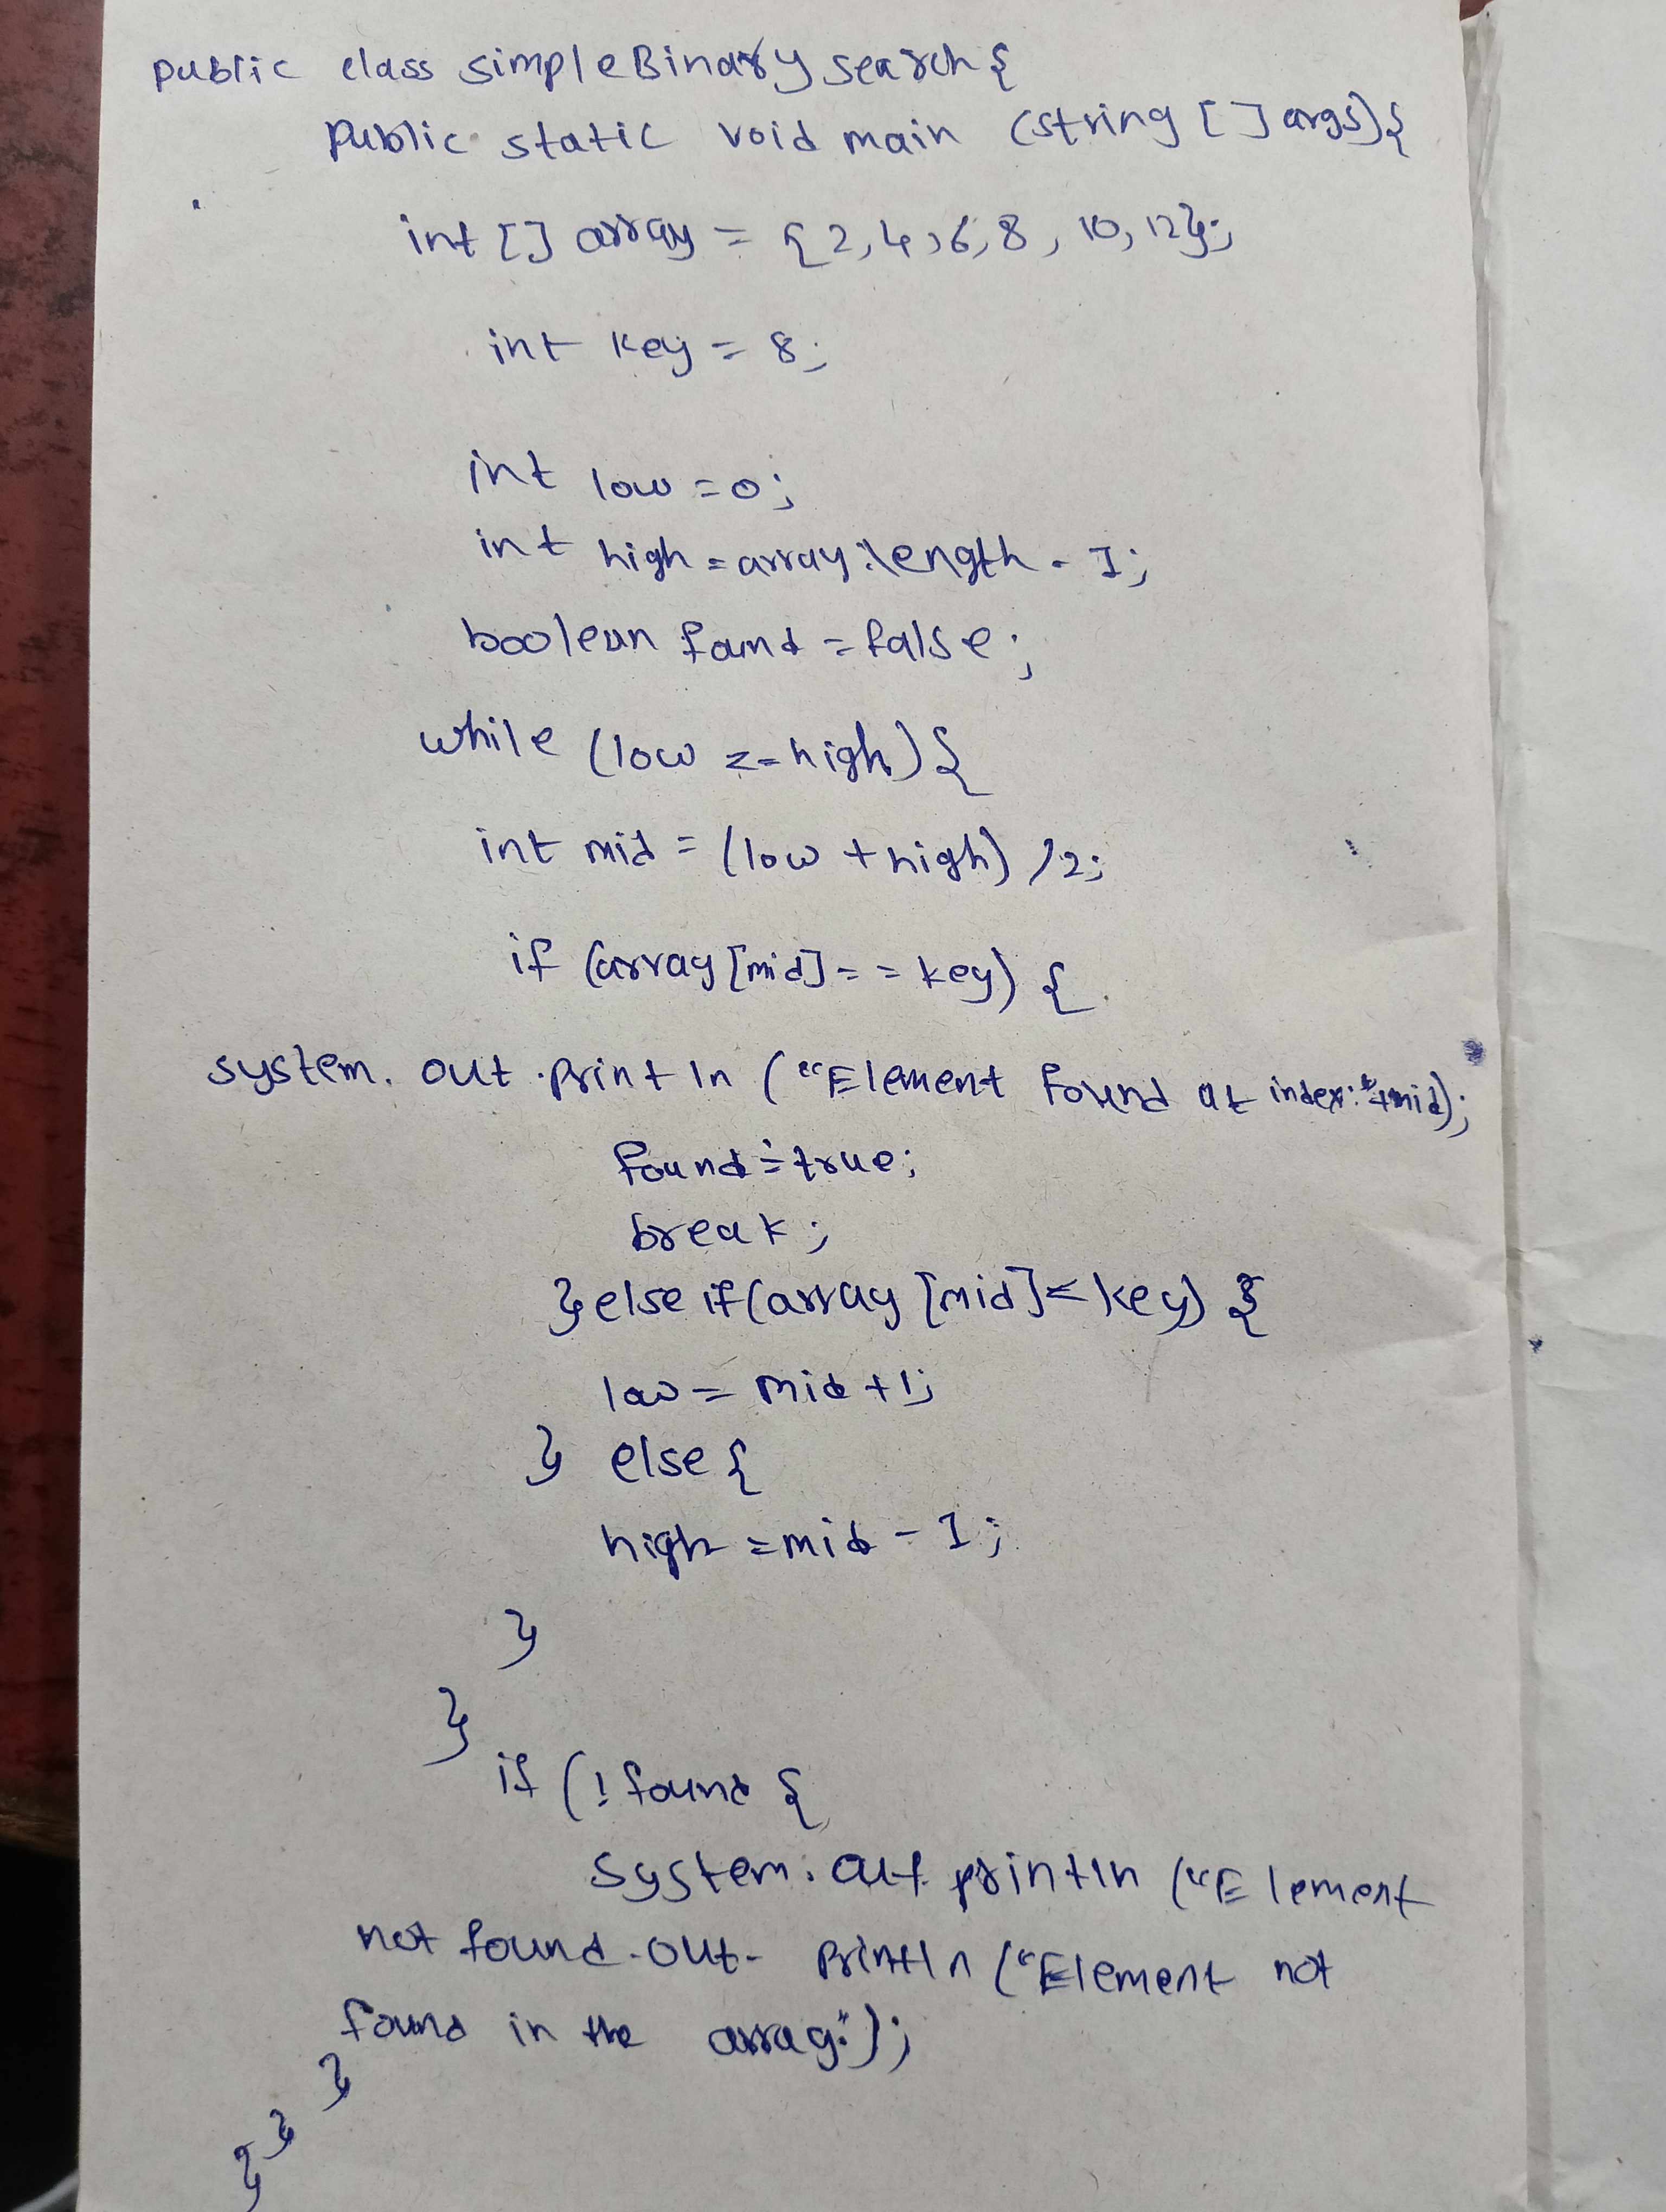 public class simpleBinary search {
public static void main (string [] args) {
int [] array = {2,4,6,8, 10,12};
int key = 8;
int low = 0;
int high = array.length - 1;
boolean found = false;
while (low <= high) {
int mid = (low + high) /2;
if (array [mid] == key) {
system. out .println ("Element found at index:"+mid);
found = true;
break;
} else if (array [mid] < key) {
low = mid +1;
} else {
high = mid - 1;
}
}
if (! found {
system. out println ("Element
not found .out. println ("Element not
found in the array.");
}
}
}